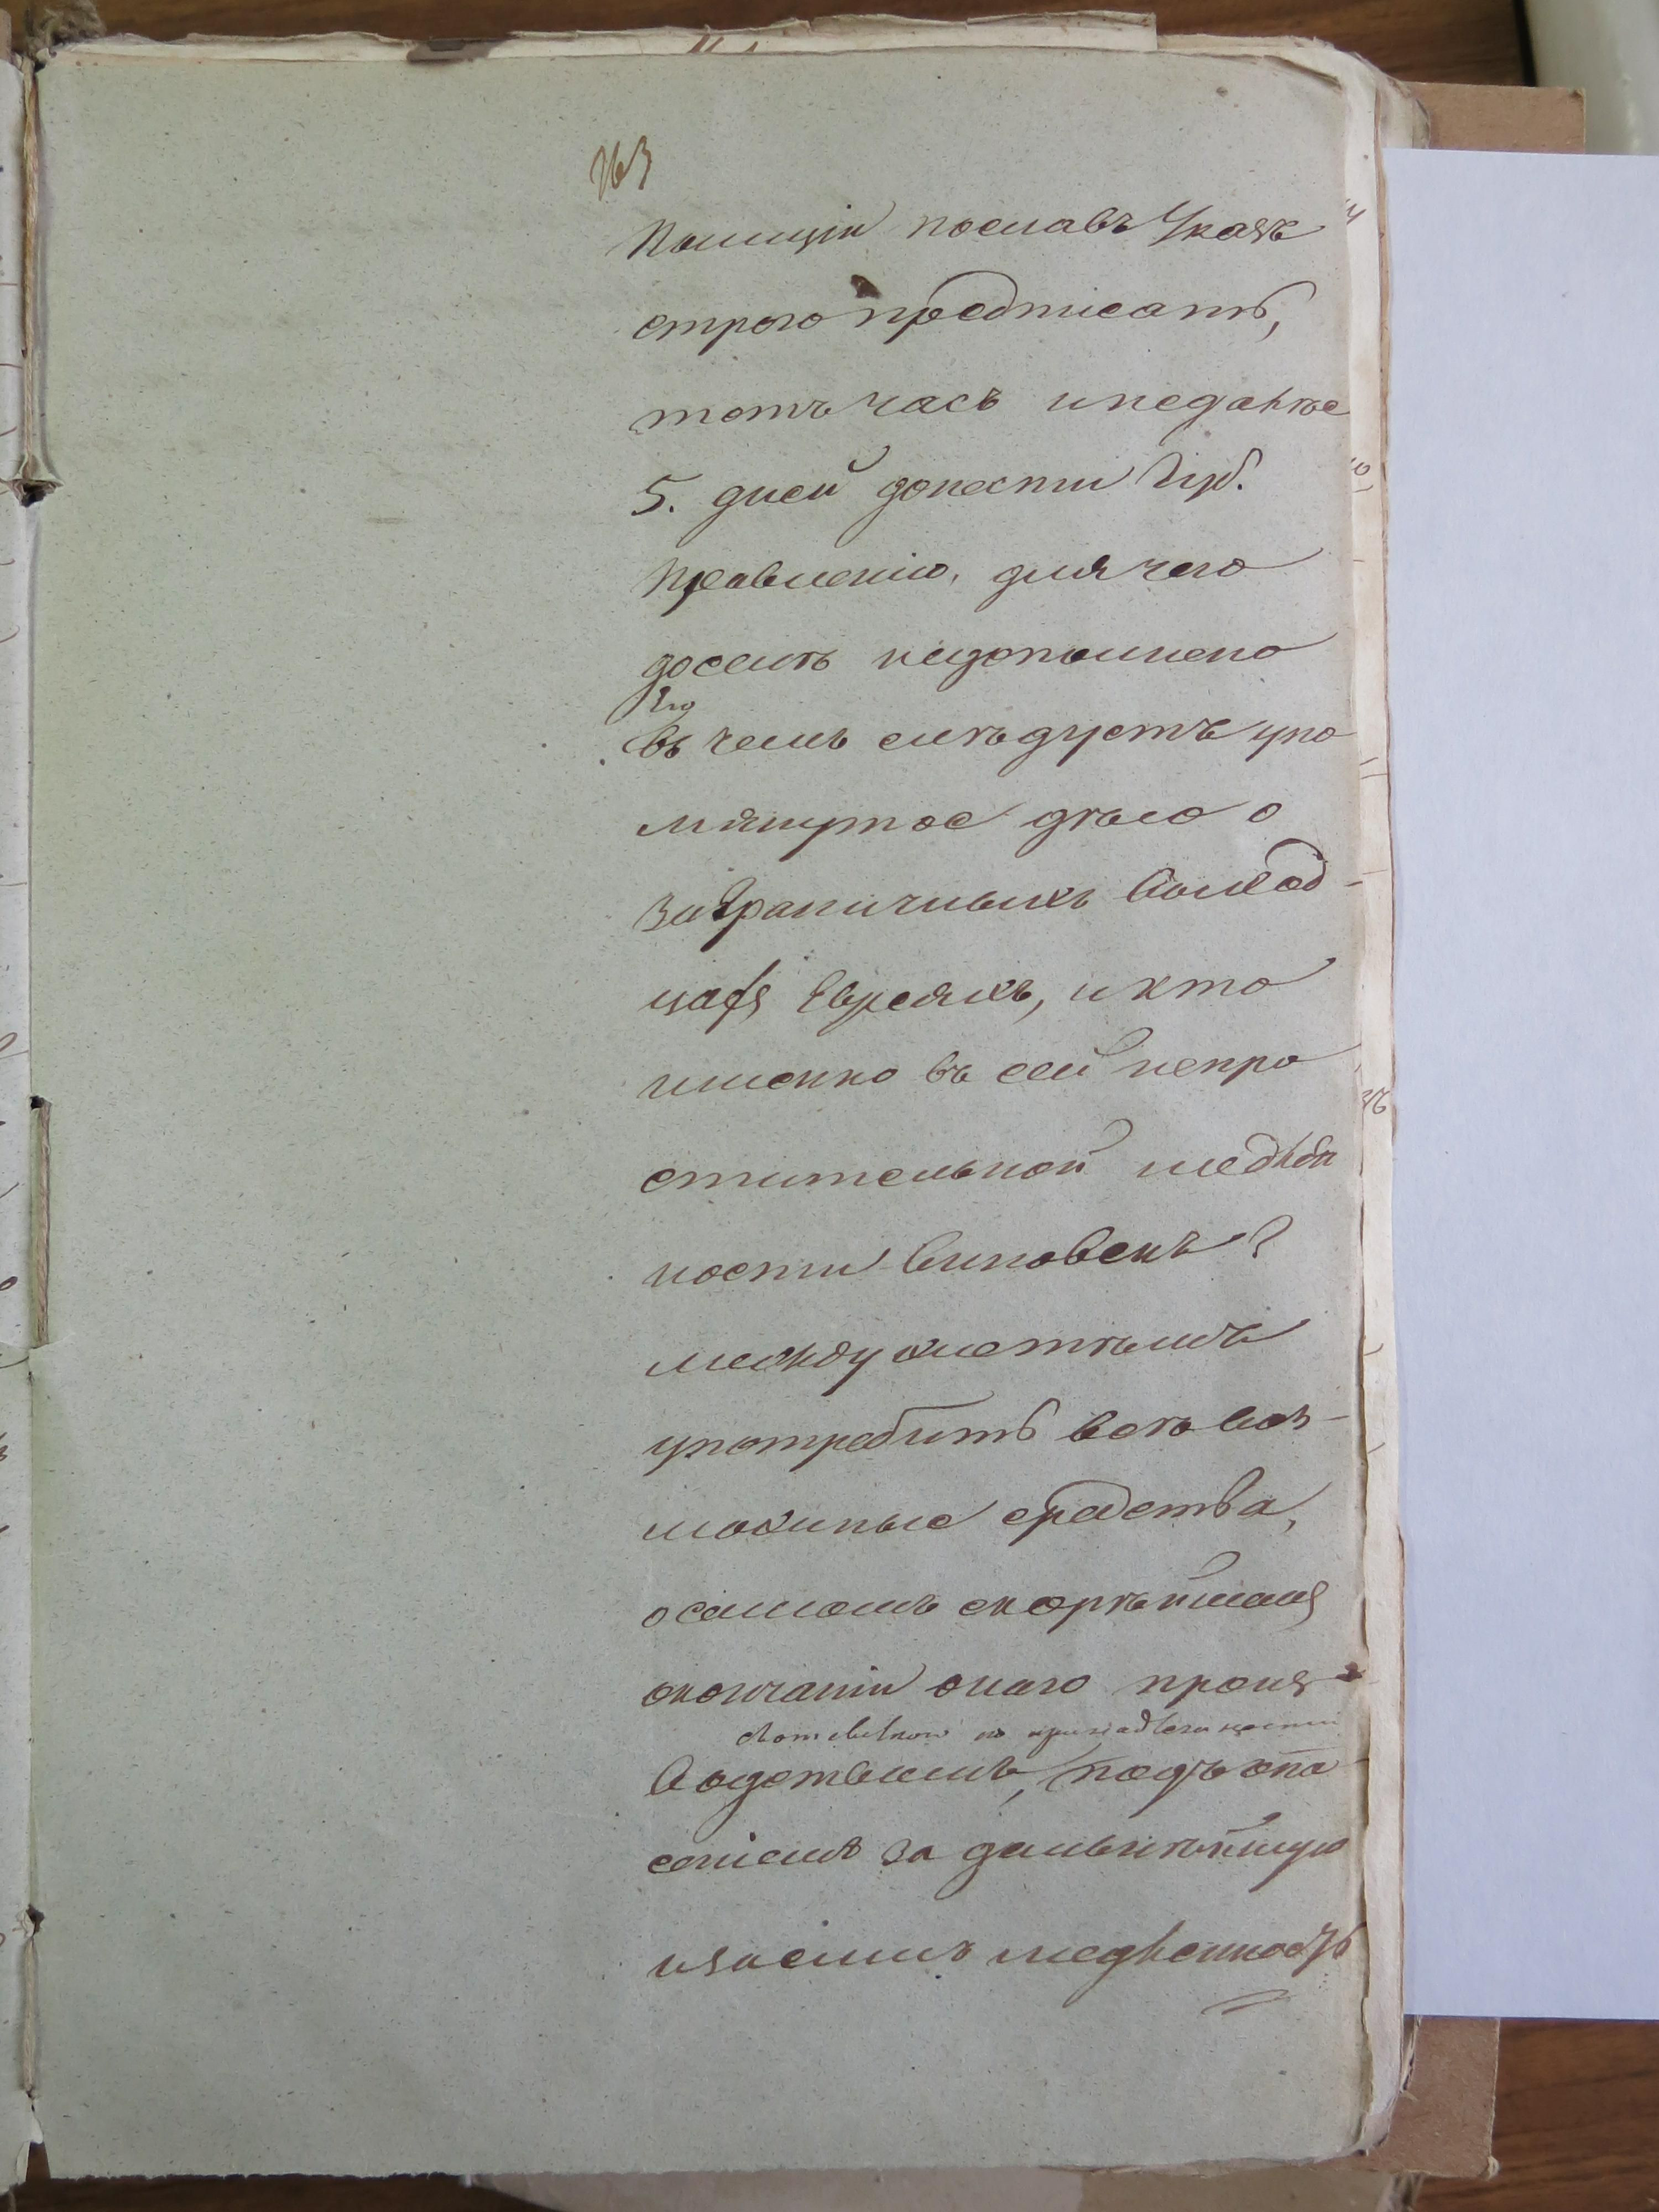 263
Полиціи пославъ Указъ
строго предписать,
тотъ часъ инедалѣе
5. дней донести Губ.
Правленію, для чего
доселѣ недополнено
въ чемъ слѣдуетъ упо
мянутое дѣло о
заграничныхъ выход-
цахъ Евреяхъ, и кто
именно въ сей непро
стительной медлѣн
ности виновенъ?
между тѣмъ
употребить всѣ воз-
можные средства,
о самомъ скорѣйшемъ
окончаніи онаго произ
по принадлежности
водствомъ, подъ опа
сеніемъ за дальнѣйшую
медленность